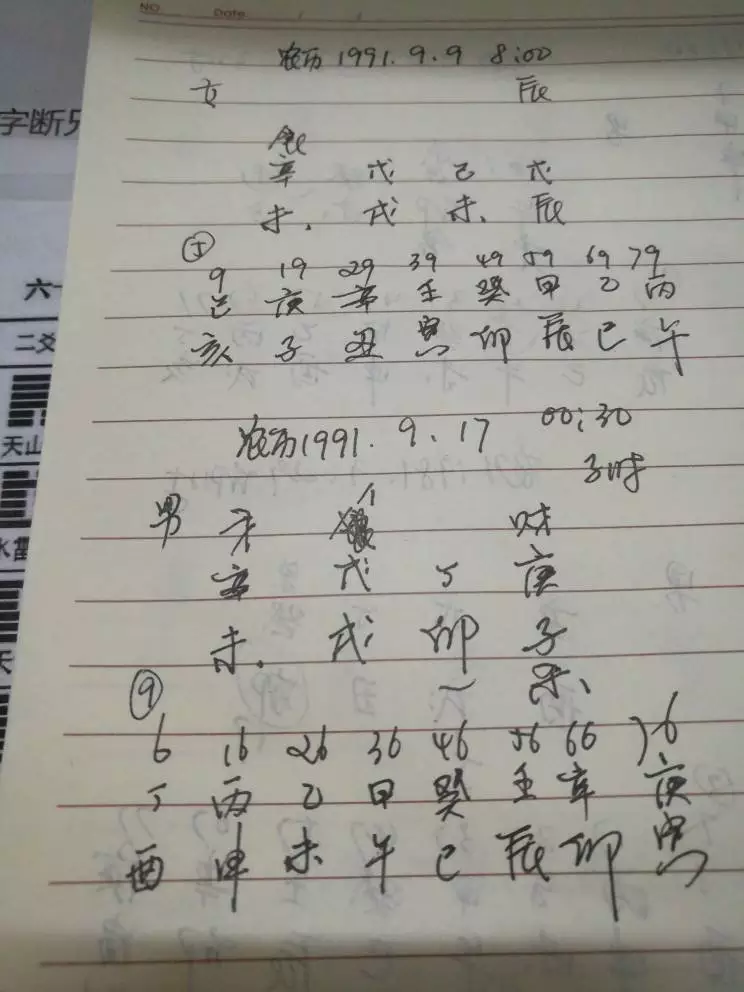 NO.
Date.
农历 1991. 9. 9 8:00
女 辰
食
辛 戊 己 戊
未. 戌 未. 辰
字断
9 19 29 39 49 59 69 79
己 庚 辛 壬 癸 甲 乙 丙
亥 子 丑 寅 卯 辰 巳 午
六十
二爻
天山
农历1991. 9. 17 00:30
子时
男 才 财
辛 戊 丁 庚
未. 戌 卯 子
⑨
6 16 26 36 46 56 66 76
丁 丙 乙 甲 癸 壬 辛 庚
酉 申 未 午 巳 辰 卯 寅
水雷
天